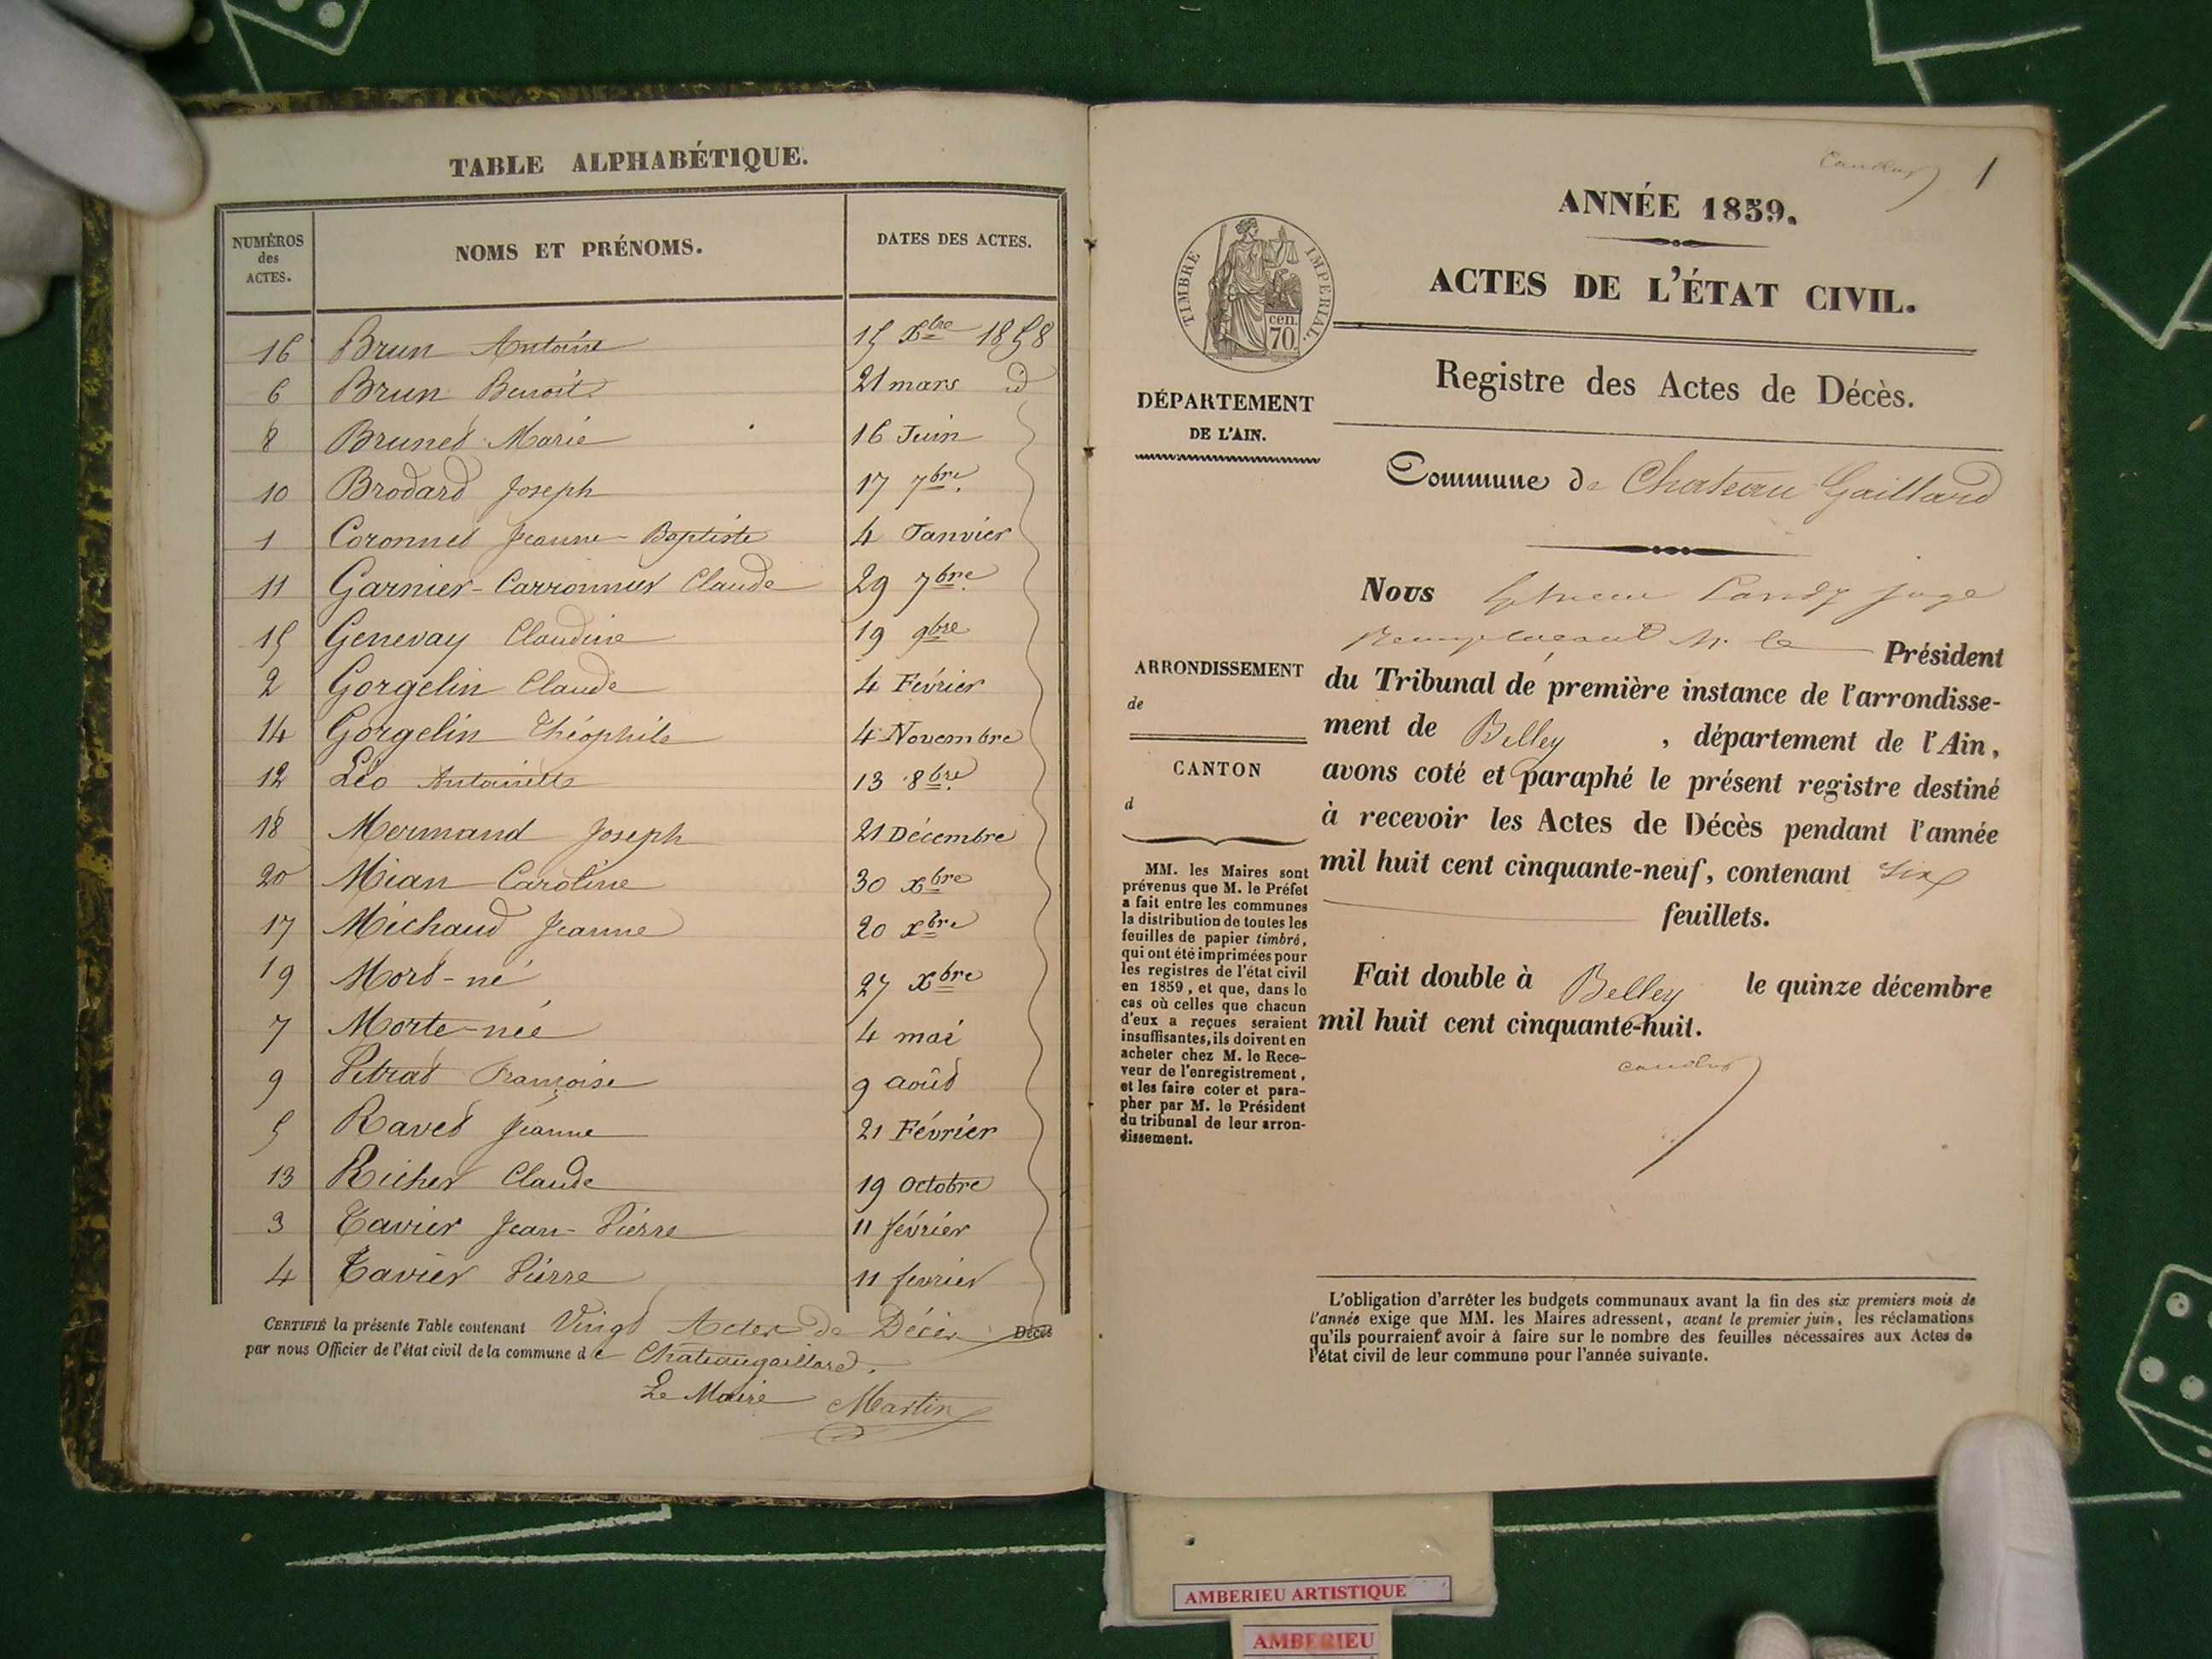 TABLE ALPHABÉTIQUE.
NUMÉROS des ACTES. NOMS ET PRÉNOMS. DATES DES ACTES.
16 Brun Antoine 15 Xbre 1858
6 Brun Benoit 21 mars id
8 Brunet Marie 16 Juin
10 Brodard Joseph 17 7bre.
1 Coronnet Jeanne-Baptiste 4 Janvier
11 Garnier-Carronnier Claude 29 7bre.
15 Genevay Claudine 19 9bre
2 Gorgelin Claude 4 Février
14 Gorgelin Théophile 4 Novembre
12 Léo Antoinette 13 8bre.
18 Mermand Joseph 21 Décembre
20 Mian Caroline 30 xbre
17 Michaud Jeanne 20 xbre
19 Mort-né 27 Xbre
7 Morte-née 4 mai
9 Petrat Françoise 9 août
5 Ravet Jeanne 21 Février
13 Richer Claude 19 Octobre
3 Tavier Jean-Pierre 11 février
4 Tavier Pierre 11 fevrier
CERTIFIÉ la présente Table contenant Vingt Actes de Décès Décès
par nous Officier de l'état civil de la commune de Chateaugaillard.
Le Maire Martin
1
ANNÉE 1859.
ACTES DE L'ÉTAT CIVIL.
TIMBRE IMPERIAL.
cen.
70.
Registre des Actes de Décès.
DÉPARTEMENT
DE L'AIN.
Commune de Chateau Gaillard
Nous juge
remplaçant M. le Président
du Tribunal de première instance de l'arrondisse-
ment de Belley , département de l'Ain,
avons coté et paraphé le présent registre destiné
à recevoir les Actes de Décès pendant l'année
mil huit cent cinquante-neuf, contenant six
feuillets.
Fait double à Belley le quinze décembre
mil huit cent cinquante-huit.
ARRONDISSEMENT
de
CANTON
d
MM. les Maires sont
prévenus que M. le Préfet
a fait entre les communes
la distribution de toutes les
feuilles de papier timbré,
qui ont été imprimées pour
les registres de l'état civil
en 1859, et que, dans le
cas où celles que chacun
d'eux a reçues seraient
insuffisantes, ils doivent en
acheter chez M. le Rece-
veur de l'enregistrement,
et les faire coter et para-
pher par M. le Président
du tribunal de leur arron-
dissement.
L'obligation d'arrêter les budgets communaux avant la fin des six premiers mois de
l'année exige que MM. les Maires adressent, avant le premier juin, les réclamations
qu'ils pourraient avoir à faire sur le nombre des feuilles nécessaires aux Actes de
l'état civil de leur commune pour l'année suivante.
AMBERIEU ARTISTIQUE
AMBERIEU